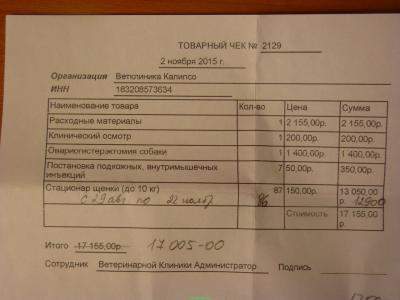 ТОВАРНЫЙ ЧЕК № 2129
2 ноября 2015 г.
Организация Ветклиника Калипсо
ИНН 183208573634
Наименование товара Кол-во Цена Сумма
Расходные материалы 1 2 155,00р. 2 155,00р.
Клинический осмотр 1 200,00р. 200,00р.
Овариогистерэктомия собаки 1 1 400,00р. 1 400,00р.
Постановка подкожных, внутримышечных инъекций 7 50,00р. 350,00р.
Стационар щенки (до 10 кг) 87 150,00р. 13 050,00р.
с 29 авг. по 22 нояб 86 12900
Стоимость 17 155,00р.
Итого 17 155,00р. 17 005-00
Сотрудник Ветеринарной Клиники Администратор Подпись